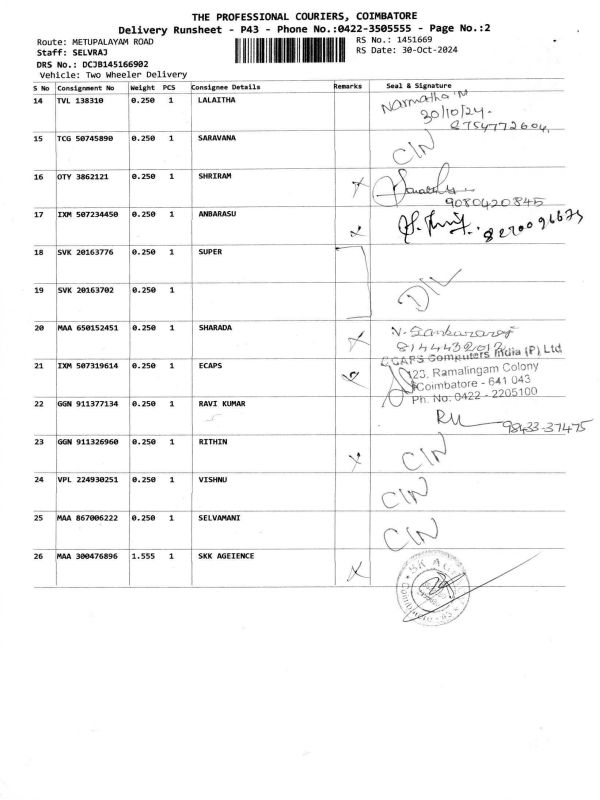 THE PROFESSIONAL COURIERS, COIMBATORE
Delivery Runsheet - P43 - Phone No.:0422-3505555 - Page No.:2
Route: METUPALAYAM ROAD RS No.: 1451669
Staff: SELVRAJ RS Date: 30-Oct-2024
DRS No.: DCJB145166902
Vehicle: Two Wheeler Delivery
S No Consignment No Weight PCS Consignee Details Remarks Seal & Signature
14 TVL 138310 0.250 1 LALAITHA Narmatha M
30/10/24.
8754772604
15 TCG 50745890 0.250 1 SARAVANA C/N
16 OTY 3862121 0.250 1 SHRIRAM X
9080420845
17 IXM 507234450 0.250 1 ANBARASU X
18 SVK 20163776 0.250 1 SUPER
19 SVK 20163702 0.250 1 D/L
20 MAA 650152451 0.250 1 SHARADA X N. Sankararaj
8144432012
21 IXM 507319614 0.250 1 ECAPS ECAPS Computers India (P) Ltd
123, Ramalingam Colony
Coimbatore - 641 043
Ph. No: 0422 - 2205100
22 GGN 911377134 0.250 1 RAVI KUMAR
98433-37475
23 GGN 911326960 0.250 1 RITHIN X C/N
24 VPL 224930251 0.250 1 VISHNU C/N
25 MAA 867006222 0.250 1 SELVAMANI C/N
26 MAA 300476896 1.555 1 SKK AGEIENCE X